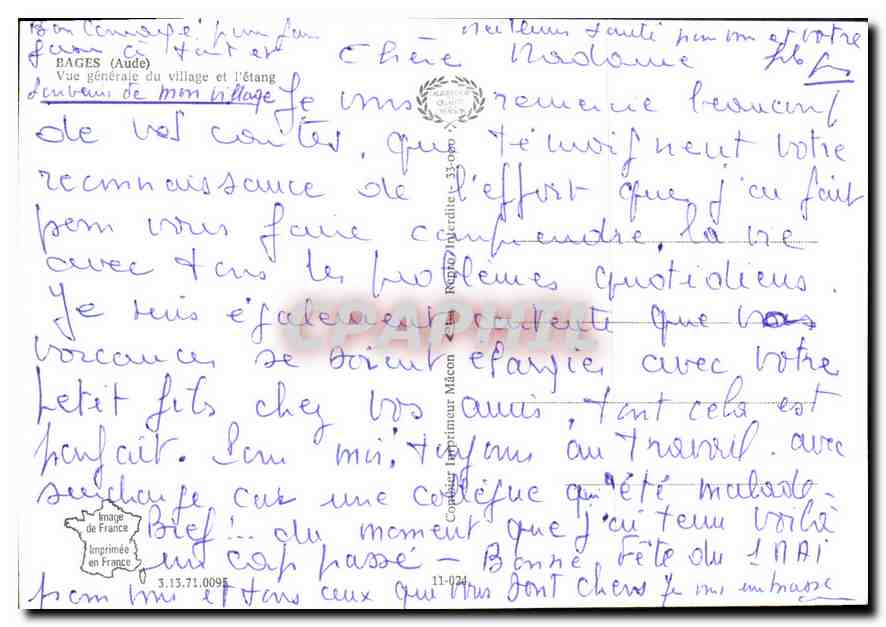 Bon Courage! pour faire
face à tout et
Meilleure santé pour vous et votre
fils
BAGES (Aude)
Vue générale du village et l'étang
Souvenir de mon village
Chère Madame
Je vous remercie beaucoup
de vos cartes, qui témoignent votre
reconnaissance de l'effort que j'ai fait
pour vous faire comprendre, la vie
avec tous les problèmes quotidiens.
Je suis également contente que vos
vacances se soient élargies avec votre
petit fils chez vos amis, tout cela est
parfait. Pour moi, toujours au travail. avec
surcharge car une collègue qu' été malade-
Bref!... du moment que j'ai tenu voilà
un cap passé - Bonne Fête du 1 MAI
pour vous et tous ceux que vous sont chers Je vous embrasse
Image
de France
Imprimée
en France
3.13.71.0095
11-024
Combier Imprimeur Mâcon
Repro. Interdite - 33-000
CPAPHIL